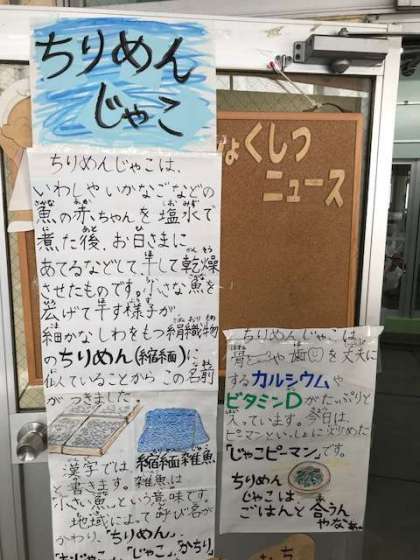 ちりめん
じゃこ
くしつ
ニュース
ちりめんじゃこは、
いわしやいかなごなどの
魚の赤ちゃんを塩水で
煮た後、お日さまに
あてるなどして、干して乾燥
させたものです。小さな魚を
広げて干す様子が
細かなしわをもつ絹織物
のちりめん(縮緬)に
似ていることからこの名前
がつきました。
漢字では、縮緬雑魚
と書きます。雑魚は
小さい魚」という意味です。
地域によって呼び名が
かわり、「ちりめん」、
「じゃこ」、
ちりめんじゃこは
骨や歯を丈夫に
するカルシウムや
ビタミンDがたっぷりと
入っています。今日は、
ピーマンといっしょに炒めた
「じゃこピーマン」です。
ちりめん
じゃこは
ごはんと合うん
やなぁ。